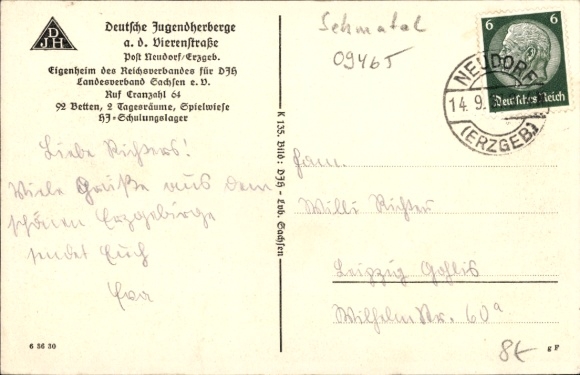 DJH
Deutsche Jugendherberge
a. d. Bierenstraße
Post Neudorf/Erzgeb.
Eigenheim des Reichsverbandes für DJH
Landesverband Sachsen e. V.
Ruf Cranzahl 64
92 Betten, 2 Tagesräume, Spielwiese
HJ-Schulungslager
Liebe Richters!
Viele Grüße aus dem
schönen Erzgebirge
sendet Euch
Eva
6 36 30
K 135. Bild: DJH - Lvb. Sachsen
Sehmatal
09465
6 6
Deutsches Reich
NEUDORF
14. 9.
(ERZGEB)
Fam.
Willi Richter
Leipzig Gohlis
Wilhelmstr. 60a
8€
g F